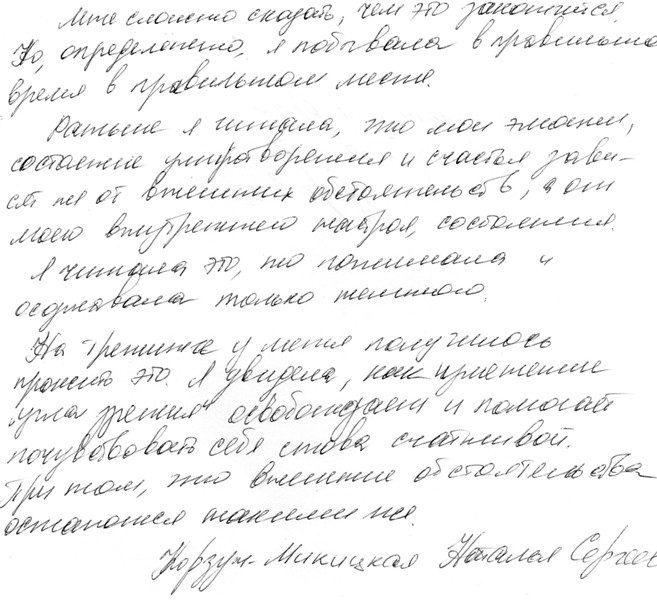 Мне сложно сказать, чем это закончится.
Но, определенно, я побывала в правильно
время в правильном месте.
Раньше я читала, что мои эмоции,
состояние умиротворения и счастья зави-
сят не от внешних обстоятельств, а от
моего внутреннего настроя, состояния.
Я читала это, но понимала и
осознавала только немного.
На тренинге у меня получилось
прожить это. Я увидела, как изменение
"угла зрения" освобождает и помогает
почувствовать себя снова счастливой.
При том, что внешние обстоятельства
остаются такими же.
Корзун-Микицкая Наталья